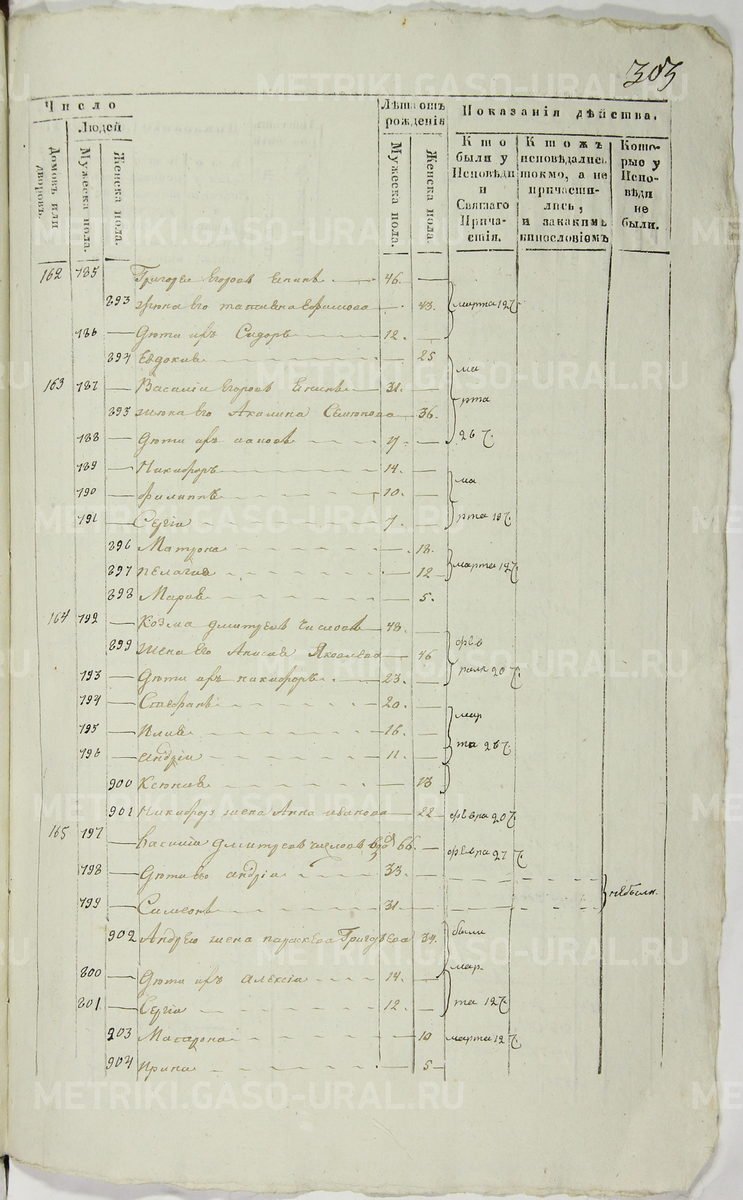 303
Число
Лѣта отъ рожденія
Показанія дѣйства.
Домовъ или дворовъ.
Людей
Мужеска пола.
Женска пола.
Мужеска пола.
Женска пола.
Кто были у Исповѣди и Святаго Причастія.
Ктожъ исповѣдались токмо, а не причастились, и за какимъ винословіемъ
Которые у Исповѣди не были.
162 785 Григорей Егоровъ 46
893 жена его Татиана Ефимова 43 марта 19 ч.
786 Дѣти ихъ Сидоръ 12
894 Евдокия 25
163 787 Василiй Егоровъ 38 ма
895 жена его Акилина Семионова 36 рта
788 Дѣти ихъ 26 ч.
789 Никифоръ 14
790 Филиппъ 10 ма
791 Сергiй 7 рта 19 ч.
896 Матрона 18
897 Пелагия 12 марта 19 ч.
898 Мария 5
164 792 Козма Дмитреевъ 48
899 жена его Яковлева 46 фев
793 Дѣти ихъ Никифоръ 23 раля 20 ч.
794 Стефанъ 20
795 Илия 16 мар
796 Андрiй 11 та 26 ч.
900 Ксения 13
901 Никифору жена Анна Иванова 22 февра 20 ч.
165 797 Василiй Дмитреевъ вдов 66 февра 27 ч.
798 Дѣти его Андрiй 33
799 Симеонъ 31 не были.
902 Андрею жена Параскева Григорьева 34 были
800 Дѣти ихъ Алексiй 14 мар
801 Сергiй 12 та 19 ч.
903 10 марта 19 ч.
904 Ирина 5
METRIKI.GASO-URAL.RU